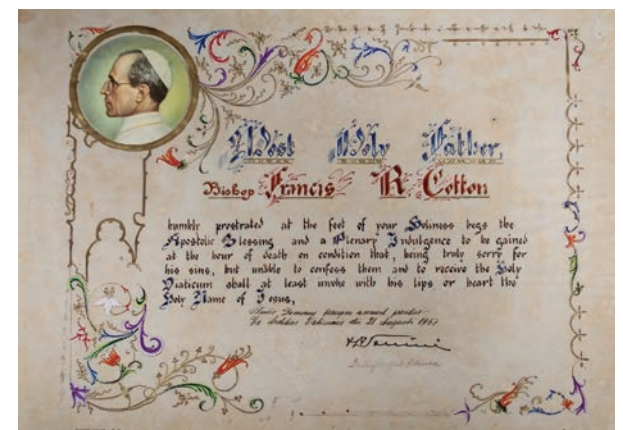 Most Holy Father,
Bishop Francis R Cotton
humbly prostrated at the feet of your Holiness begs the
Apostolic Blessing and a Plenary Indulgence to be gained
at the hour of death on condition that, being truly sorry for
his sins, but unable to confess them and to receive the Holy
Viaticum shall at least invoke with his lips or heart the
Holy Name of Jesus,
annuit
die 21